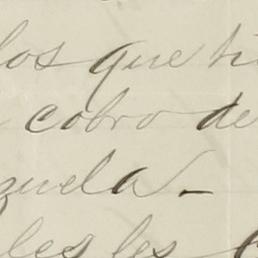 los que ti
cobro de
zuela.-
les les